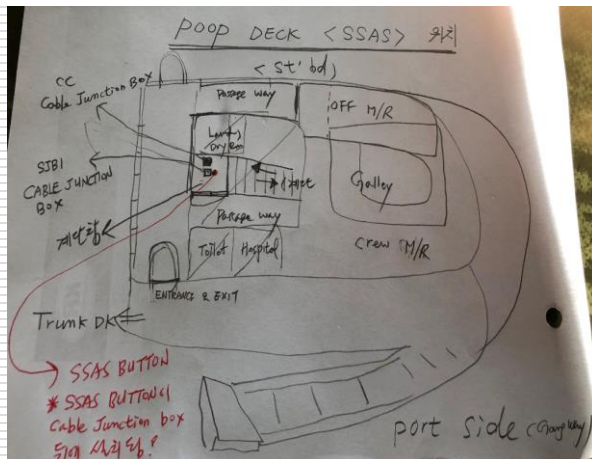 POOP DECK <SSAS> 위치
<St'bd>
CC
Cable Junction Box
Passage way
OFF M/R
SJB1
CABLE JUNCTION
BOX
Galley
계단창
Passage way
Toilet
Hospital
Crew M/R
ENTRANCE & EXIT
Trunk DK
SSAS BUTTON
* SSAS BUTTON이
Cable Junction box
뒤에 설치됨?
port side (Gangway)